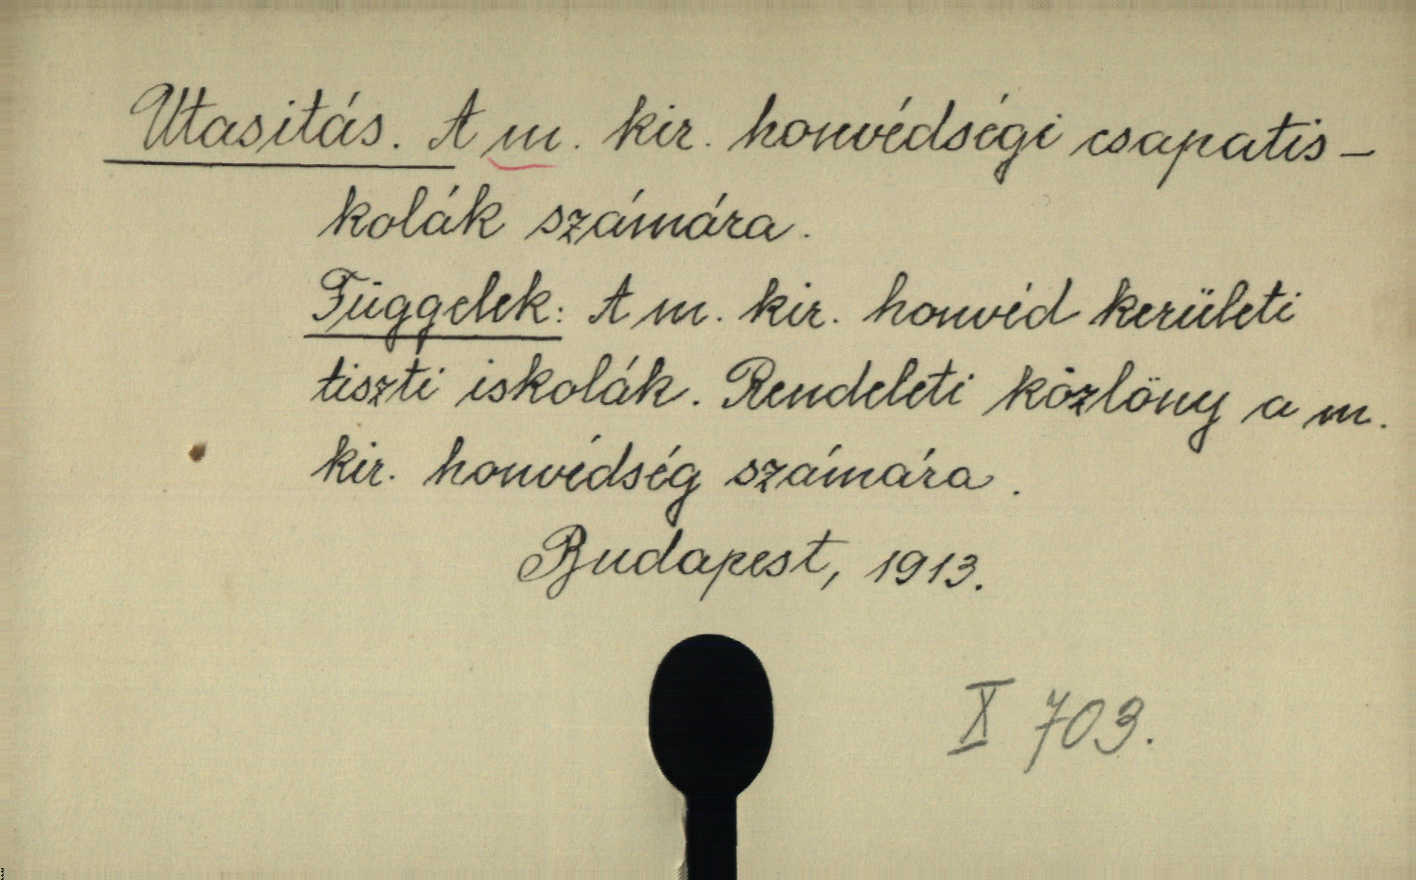 Utasitás. A m. kir. honvédségi csapatis-
kolák számára.
Függelek: A m. kir. honvéd kerületi
tiszti iskolák. Rendeleti közlöny a m.
kir. honvédség számára.
Budapest, 1913.
X 703.